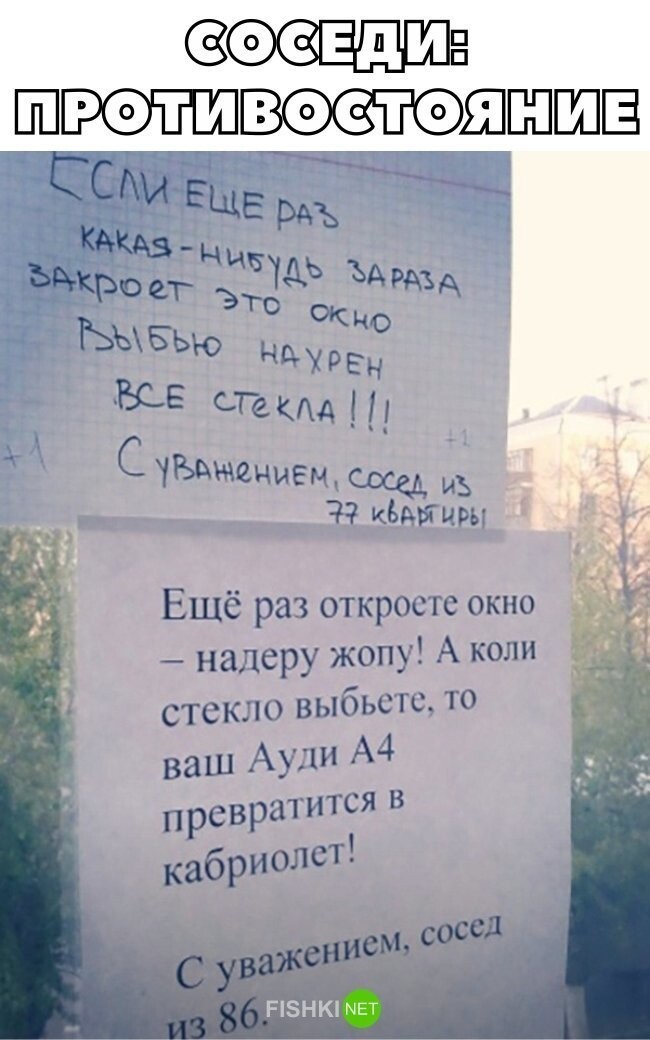 СОСЕДИ:
ПРОТИВОСТОЯНИЕ
ЕСЛИ ЕЩЕ РАЗ
КАКАЯ-НИБУДЬ ЗАРАЗА
ЗАКРОЕТ ЭТО ОКНО
ВЫБЬЮ НАХРЕН
ВСЕ СТЕКЛА!!!
+1
+1
С УВАЖЕНИЕМ, СОСЕД ИЗ
77 КВАРТИРЫ
Ещё раз откроете окно
– надеру жопу! А коли
стекло выбьете, то
ваш Ауди А4
превратится в
кабриолет!
С уважением, сосед
из 86.
FISHKI NET